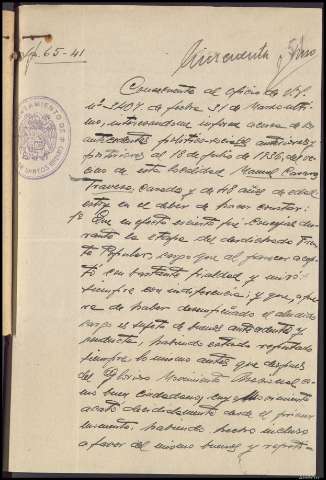 65-41
Cincuenta y
AYUNTAMIENTO DE
Consecuente al oficio de V.S.
nº 3407, de fecha 31 de Marzo últi-
mo, interesándome informe acerca de los
antecedentes político-sociales anteriores y
posteriores al 18 de Julio de 1936, del ve-
cino de esta localidad Manuel
Traverso, casado y de 48 años de edad
estoy en el deber de hacer constar:
1º Que en efecto el mismo fué Concejal du-
rante la etapa del desdichado Fren-
te Popular, cargo que al parecer acep-
tó con bastante frialdad y miró
siempre con indiferencia; y que, apar-
te de haber desempeñado el aludido
cargo es sujeto de buenos antecedentes y
conducta, habiendo estado reputado
siempre lo mismo antes que después
del Glorioso Movimiento Nacional co-
mo buen ciudadano, cuyo Movimiento
acató decididamente desde el primer
momento, habiendo hecho incluso
a favor del mismo buenos y repeti-